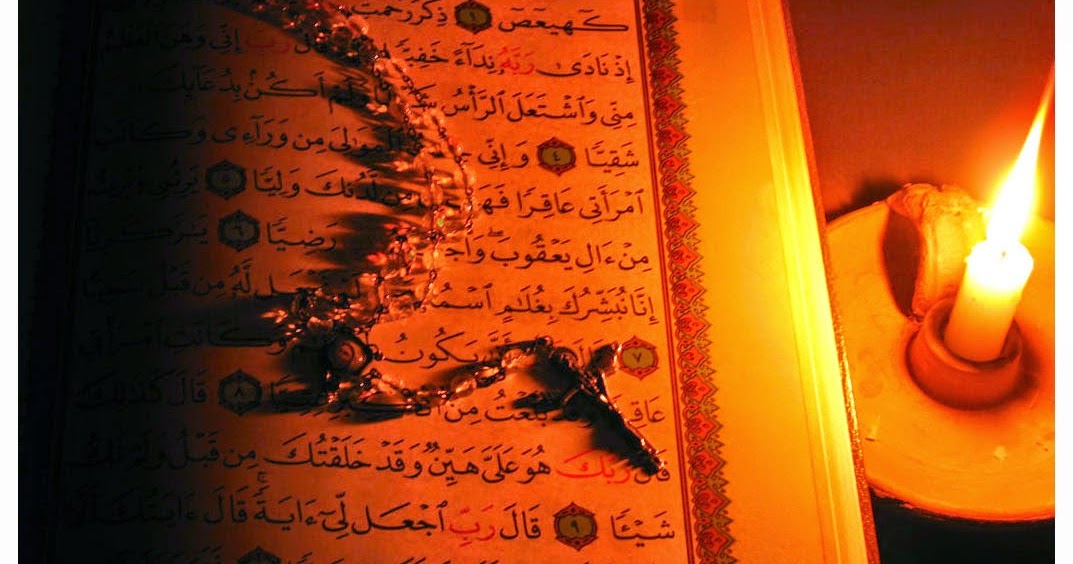 كٓهيعٓصٓ ١ ذِكْرُ رَحْمَتِ
إِذْ نَادَىٰ رَبَّهُۥ نِدَآءً خَفِيًّا قَالَ رَبِّ إِنِّى وَهَنَ ٱلْعَظْمُ
مِنِّى وَٱشْتَعَلَ ٱلرَّأْسُ وَلَمْ أَكُنۢ بِدُعَآئِكَ
شَقِيًّا ٤ وَإِنِّى ٱلْمَوَٰلِىَ مِن وَرَآءِى وَكَانَتِ
ٱمْرَأَتِى عَاقِرًا فَهَبْ مِن لَّدُنكَ وَلِيًّا ٥ يَرِثُنِى وَيَرِثُ
مِنْ ءَالِ يَعْقُوبَ ۖ رَضِيًّا ٦ يَٰزَكَرِيَّآ
إِنَّا نُبَشِّرُكَ بِغُلَٰمٍ ٱسْمُهُۥ نَجْعَل لَّهُۥ مِن قَبْلُ سَمِيًّا
٧ قَالَ أَنَّىٰ يَكُونُ وَكَانَتِ ٱمْرَأَتِى
عَاقِرًا وَقَدْ بَلَغْتُ مِنَ ٱلْكِبَرِ عِتِيًّا ٨ قَالَ كَذَٰلِكَ
قَالَ رَبُّكَ هُوَ عَلَىَّ هَيِّنٌ وَقَدْ خَلَقْتُكَ مِن قَبْلُ وَلَمْ تَكُ
شَيْـًٔا ٩ قَالَ رَبِّ ٱجْعَل لِّىٓ ءَايَةً ۚ قَالَ ءَايَتُكَ أَلَّا